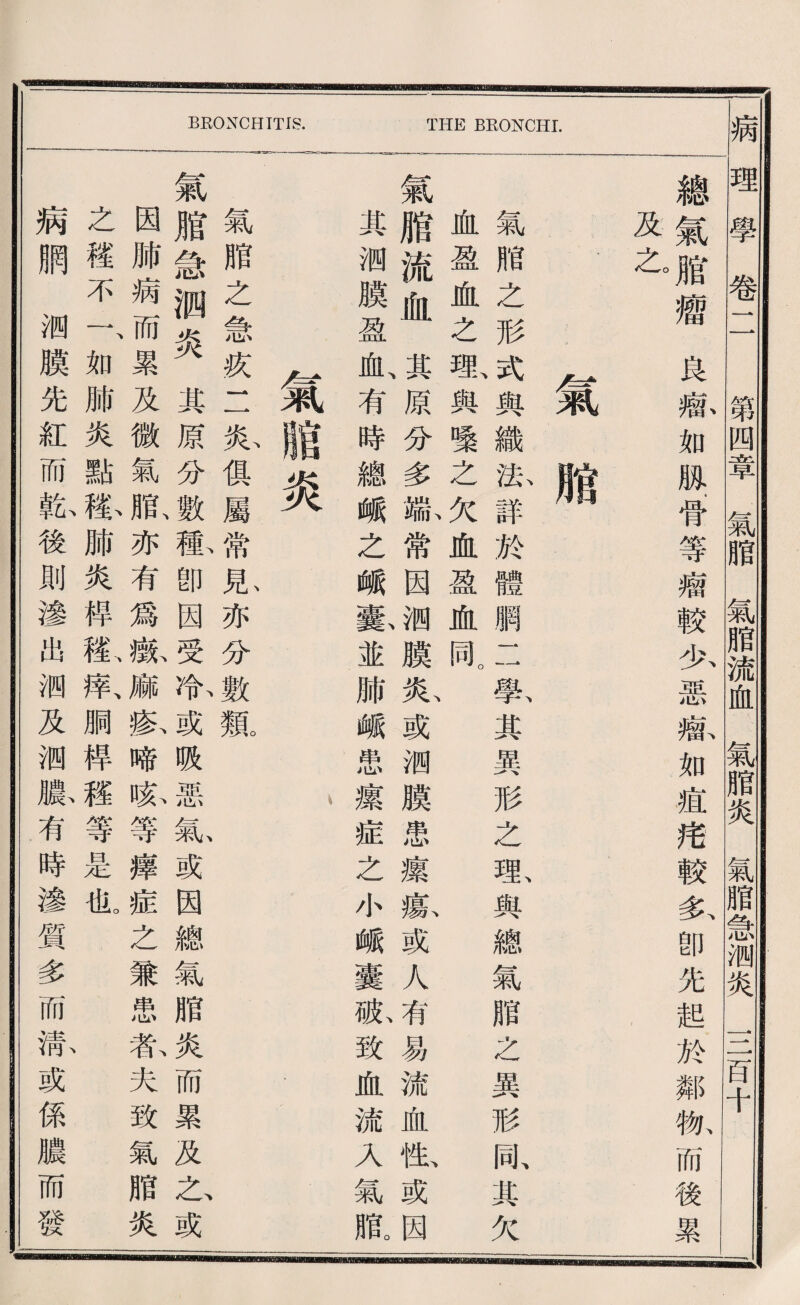 病理學 卷二 第四章 氣⿰月官 氣⿰月官流血 氣⿰月官炎 氣⿰月官急泗炎 三百十
BRONCHITIS. THE BRONCHI.
總氣⿰月官瘤 良瘤、如 骨等瘤較少、惡瘤、如疽 較多、卽先起於鄰物、而後累
及之。
氣⿰月官
氣⿰月官之形式與織法、詳於體 二學、其異形之理、與總氣⿰月官之異形同、其欠
血盈血之理、與嗓之欠血盈血同。
氣⿰月官流血 其原分多端、常因泗膜炎、或泗膜患瘰瘍、或人有易流血性、或因
其泗膜盈血、有時總衇之衇囊、並肺衇患瘰症之小衇囊破、致血流入氣⿰月官。
氣⿰月官炎
氣⿰月官之急 二炎、俱屬常見、亦分數類。
氣⿰月官急泗炎 其原分數種、卽因受冷、或吸惡氣、或因總氣⿰月官炎而累及之、或
因肺病而累及微氣⿰月官、亦有爲 、痲疹、啼咳、等 症之兼患者、夫致氣⿰月官炎
之 不一、如肺炎點 、肺炎桿 、 、胴桿 等是也。
病  泗膜先紅而乾、後則滲出泗及泗膿、有時滲質多而淸、或係膿而發